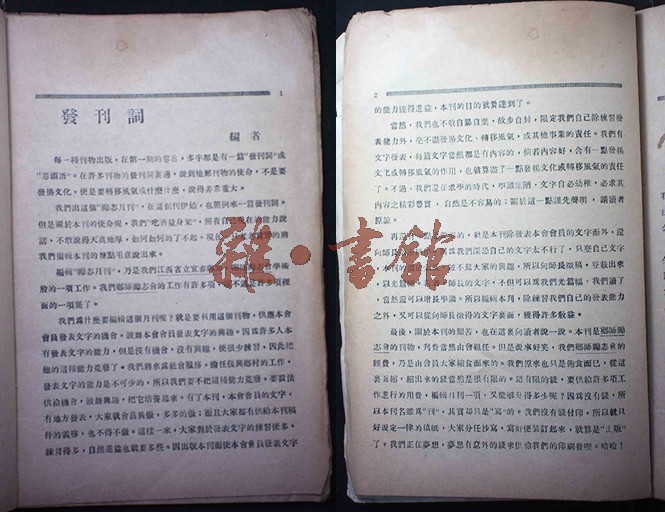 1
發刊詞
編者
每一種刊物出版，在第一期的卷首，多半都是有一篇“發刊詞”或
“卷頭語”。在許多刊物的發刊詞裏邊，說到他那刊物的使命，不是要
發揚文化，便是要轉移風氣或什麼什麼，說得非常重大。
我們出這個“勵志月刊”，在這創刊伊始，也照例來一篇發刊詞。
但是關於本刊的使命呢，我們“吃酒量身家”，照着自己
話，不敢說得天高地厚，如何如何的了不起。現在
我們編輯本刊的幾點用意說出來。
編輯“勵志月刊”，乃是我們江西省立宜春
股的一項工作。我們鄉師勵志會的工作有許多項
面的一項罷了。
我們爲什麼要編輯這個月刊呢？就是要利用這個刊物，供應本會
會員發表文字的機會，鼓舞本會會員發表文字的興趣。因爲許多人本
有發表文字的能力，但是沒有機會，沒有興趣，便很少練習，因此把
他的這種能力荒廢了。我們將來爲社會服務，擔任復興鄉村的工作，
發表文字的能力是不可少的，所以我們要不把這種能力荒廢，要設法
供給機會，鼓舞興趣，把它培養起來。有了本刊，本會會員的文字，
有地方發表，大家就會高興做，多多的做；而且大家都有供給本刊稿
件的義務，也不得不做。這樣一來，大家對於發表文字的練習便多，
練習得多，自然進益也就要多些。因出版本刊而使本會會員發表文字
2
的能力獲得進益，本刊的目的就算達到了。
當然，我們也不敢自暴自棄，故步自封，限定我們自己除練習發
表能力外，毫不盡發揚文化，轉移風氣，或其他事業的責任。我們有
文字發表，每篇文字當然都是有內容的，倘若內容好，含有一點發揚
文化或轉移風氣的能力，也就算盡了一點發揚文化或轉移風氣的責任
了。不過，我們還在求學的時代，學識淺陋，文字自必幼稚，必求其
內容之精彩豐實，自然是不容易的；關於這一點謹先聲明，請讀者
原諒。
就是本刊除發表本會會員的文字面外，還
向師長
我們深恐自己的文字太不行，只登自己文字
，本刊的
不起大家的興趣，所以向師長徵稿，登載出來
，以光篇幅
師長的文字，不但可以爲我們光篇幅，我們讀了
，當然還可以增長學識。所以編輯本刊，除練習我們自己的發表能力
之外，又可以從向師長徵得的文字裏面，獲得許多敎益。
最後，關於本刊的艱苦，也在這裏向讀者說一說。本刊是鄉師勵
志會的刊物，刊費當然由會担任。但是說來好笑，我們鄉師勵志會的
經費，乃是由會員大家縮食而來的。我們原來也只是飽食而已，從這
裏面縮出來的錢當然是很有限的。這有限的錢，要供給許多項工
作進行的用費，編輯月刊一項，又能够分得多少呢？因爲沒有錢，所
以本刊名雖爲“刊”，其實却只是“寫”的。我們沒有錢付印，所以就只
好規定一律的稿紙，大家分任抄寫，寫好便裝訂起來，就算是“出版”
了。我們正在夢想，夢想有意外的錢來供給我們的印刷費哩。哈哈！
雜·書館